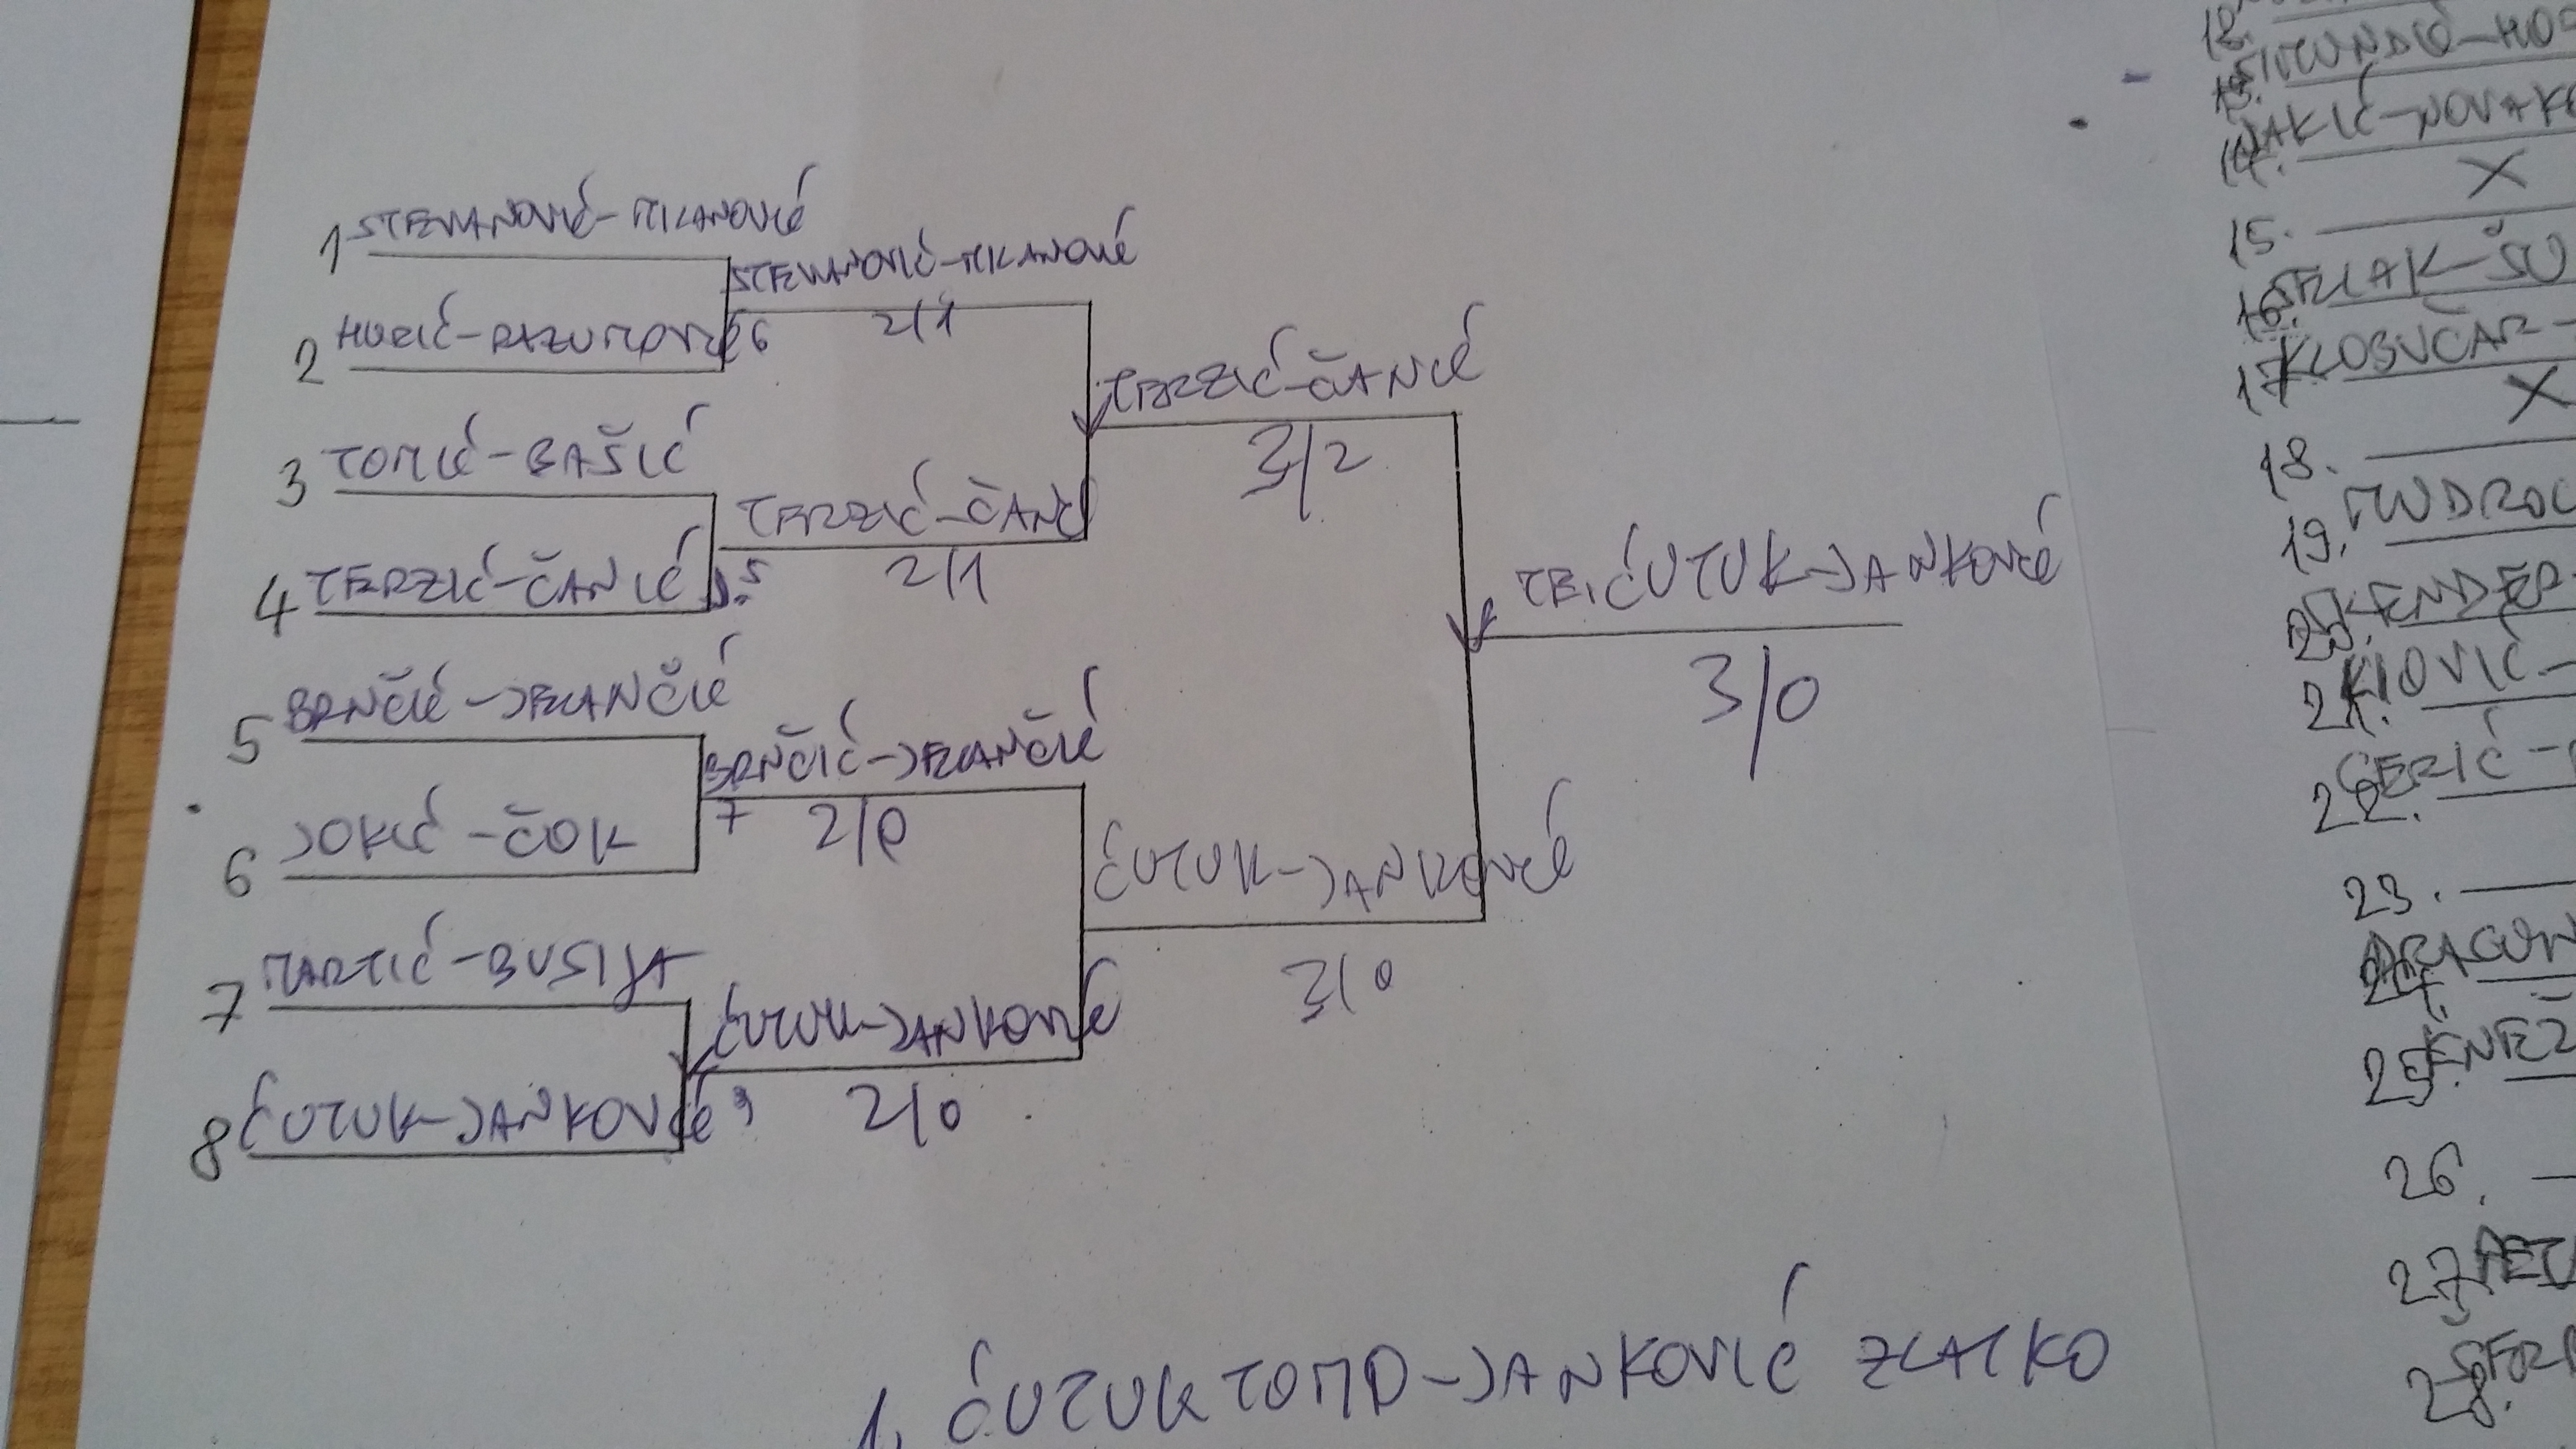 1 STEVANOVIĆ-MILANOVIĆ
2 HORIĆ-RAZUMOVIĆ
3 TOMIĆ-BAŠIĆ
4 TERZIĆ-ČANIĆ
5 BRNČIĆ-JELANČIĆ
6 JOKIĆ-ČOK
7 MARTIĆ-BUSIJA
8 ĆUTUK-JANKOVIĆ
STEVANOVIĆ-MILANOVIĆ
6 2/1
TERZIĆ-ČANI
5 2/1
BRNČIĆ-JELANČIĆ
7 2/0
ĆUTUK-JANKOVIĆ
9 2/0
TERZIĆ-ČANIĆ
3/2
ĆUTUK-JANKOVIĆ
3/0
TE. ĆUTUK-JANKOVIĆ
3/0
1. ĆUTUK TOMO-JANKOVIĆ ZLATKO
12.
13.
14. NOVAK
X
15.
16. SELAK-ŠU
17. KLOBUČAR-
X
18.
19.
20. KENDER
21. KIOVIĆ-
22. GERIĆ-
23.
24. DRAGUN
25. KNEZ
26.
27. PET
28.